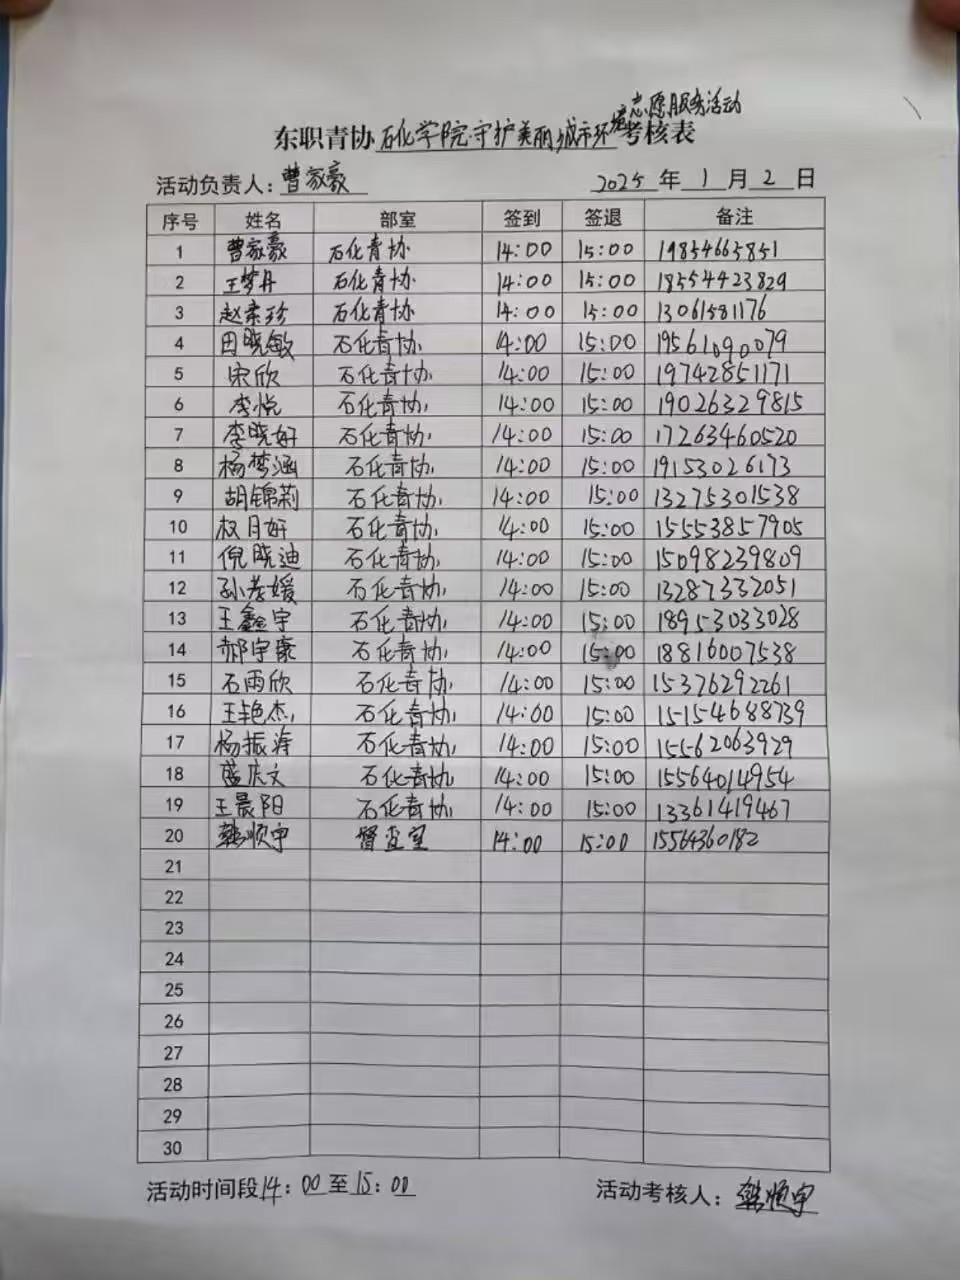 志愿服务活动
东职青协石化学院守护美丽城市环境考核表
活动负责人：曹家豪 2025年1月2日
序号 姓名 部室 签到 签退 备注
1 曹家豪 石化青协 14:00 15:00 19854665851
2 王梦丹 石化青协 14:00 15:00 18554423829
3 赵素珍 石化青协 14:00 15:00 13061581176
4 田晓敏 石化青协 14:00 15:00 19561090079
5 宋欣 石化青协 14:00 15:00 19742851171
6 李悦 石化青协 14:00 15:00 19026329815
7 李晓好 石化青协 14:00 15:00 17263460520
8 杨梦涵 石化青协 14:00 15:00 19153026173
9 胡锦莉 石化青协 14:00 15:00 13275301538
10 权月好 石化青协 14:00 15:00 15553857905
11 倪晓迪 石化青协 14:00 15:00 15098239809
12 孙孝媛 石化青协 14:00 15:00 13287332051
13 王鑫宇 石化青协 14:00 15:00 18953033028
14 郝宇康 石化青协 14:00 15:00 18816007538
15 石雨欣 石化青协 14:00 15:00 15376292261
16 王艳杰 石化青协 14:00 15:00 15154688739
17 杨振涛 石化青协 14:00 15:00 15562063929
18 盛庆文 石化青协 14:00 15:00 15564014954
19 王晨阳 石化青协 14:00 15:00 13361419467
20 顺宇 督查室 14:00 15:00 15564360182
21
22
23
24
25
26
27
28
29
30
活动时间段14：00至15：00 活动考核人：顺宇